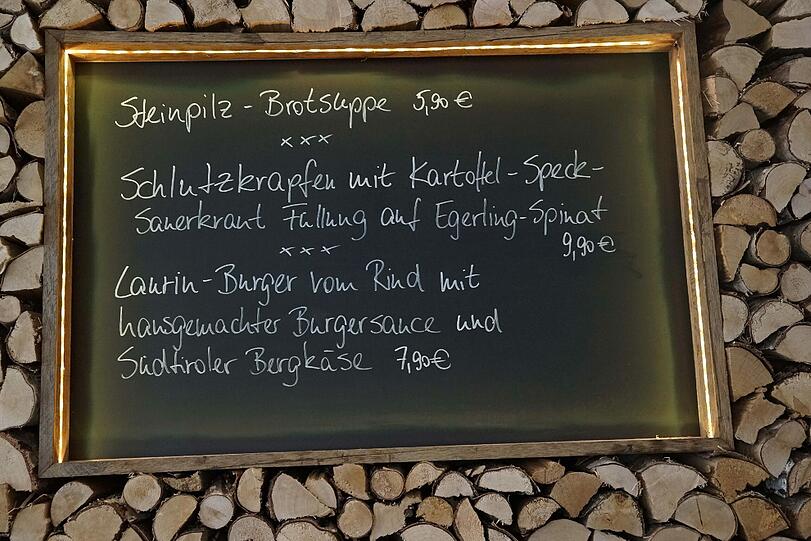 Steinpilz - Brotsuppe 5,90 €
xxx
Schlutzkrapfen mit Kartoffel-Speck-
Sauerkraut Füllung auf Egerling-Spinat
9,90 €
xxx
Laurin-Burger vom Rind mit
hausgemachter Burgersauce und
Südtiroler Bergkäse 7,90 €